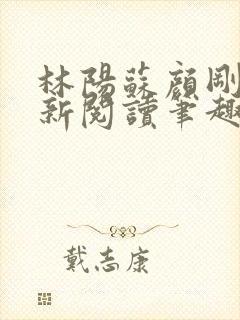 林陽蘇顏剛
新閱讀筆趣
戴志康